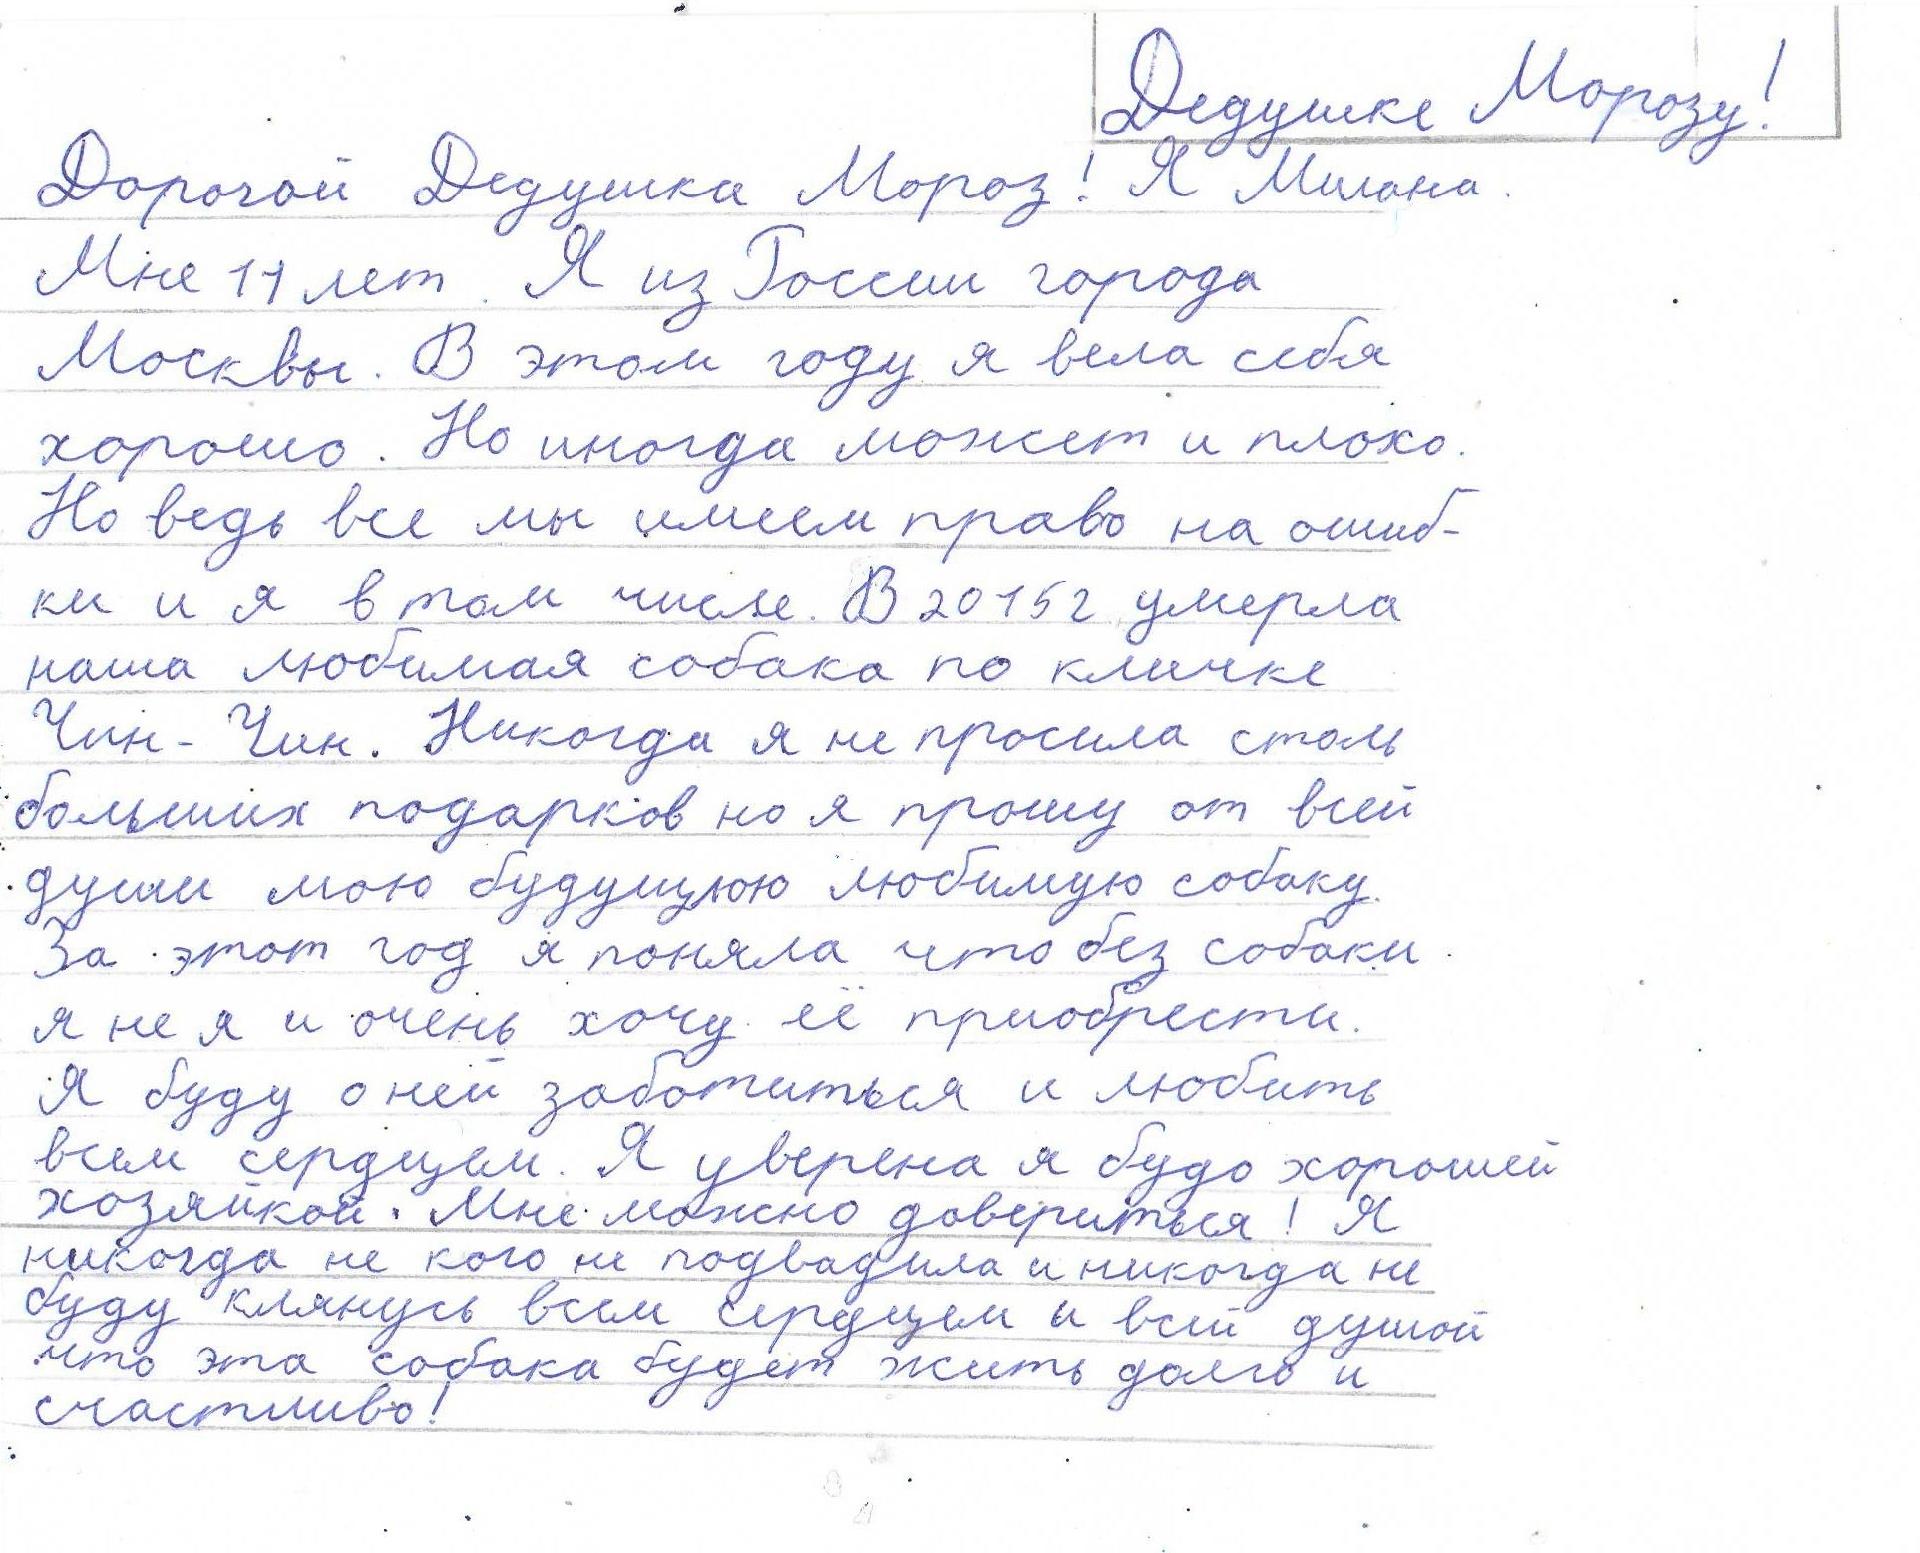 Дедушке Морозу!
Дорогой Дедушка Мороз! Я Милана.
Мне 11 лет. Я из России города
Москвы. В этом году я вела себя
хорошо. Но иногда может и плохо.
Но ведь все мы имеем право на ошиб-
ки и я в том числе. В 2015г умерла
наша любимая собака по кличке
Чин-Чин. Никогда я не просила столь
больших подарков но я прошу от всей
души мою будущюю любимую собаку.
За этот год я поняла что без собаки
я не я и очень хочу её приобрести.
Я буду о ней заботиться и любить
всем сердцем. Я уверена я будо хорошей
хозяйкой. Мне можно довериться! Я
никогда не кого не подвадила и никогда не
буду клянусь всем сердцем и всей душой
что эта собака будет жить долго и
счастливо!